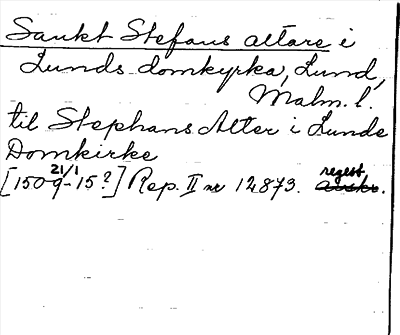 Sankt Stefans altare i
Lunds domkyrka, Lund,
Malm. l.
til Stephans Alter i Lunde
Domkirke
[1509 21/1 -15?] Rep. II nr 12873. regest. avskr.